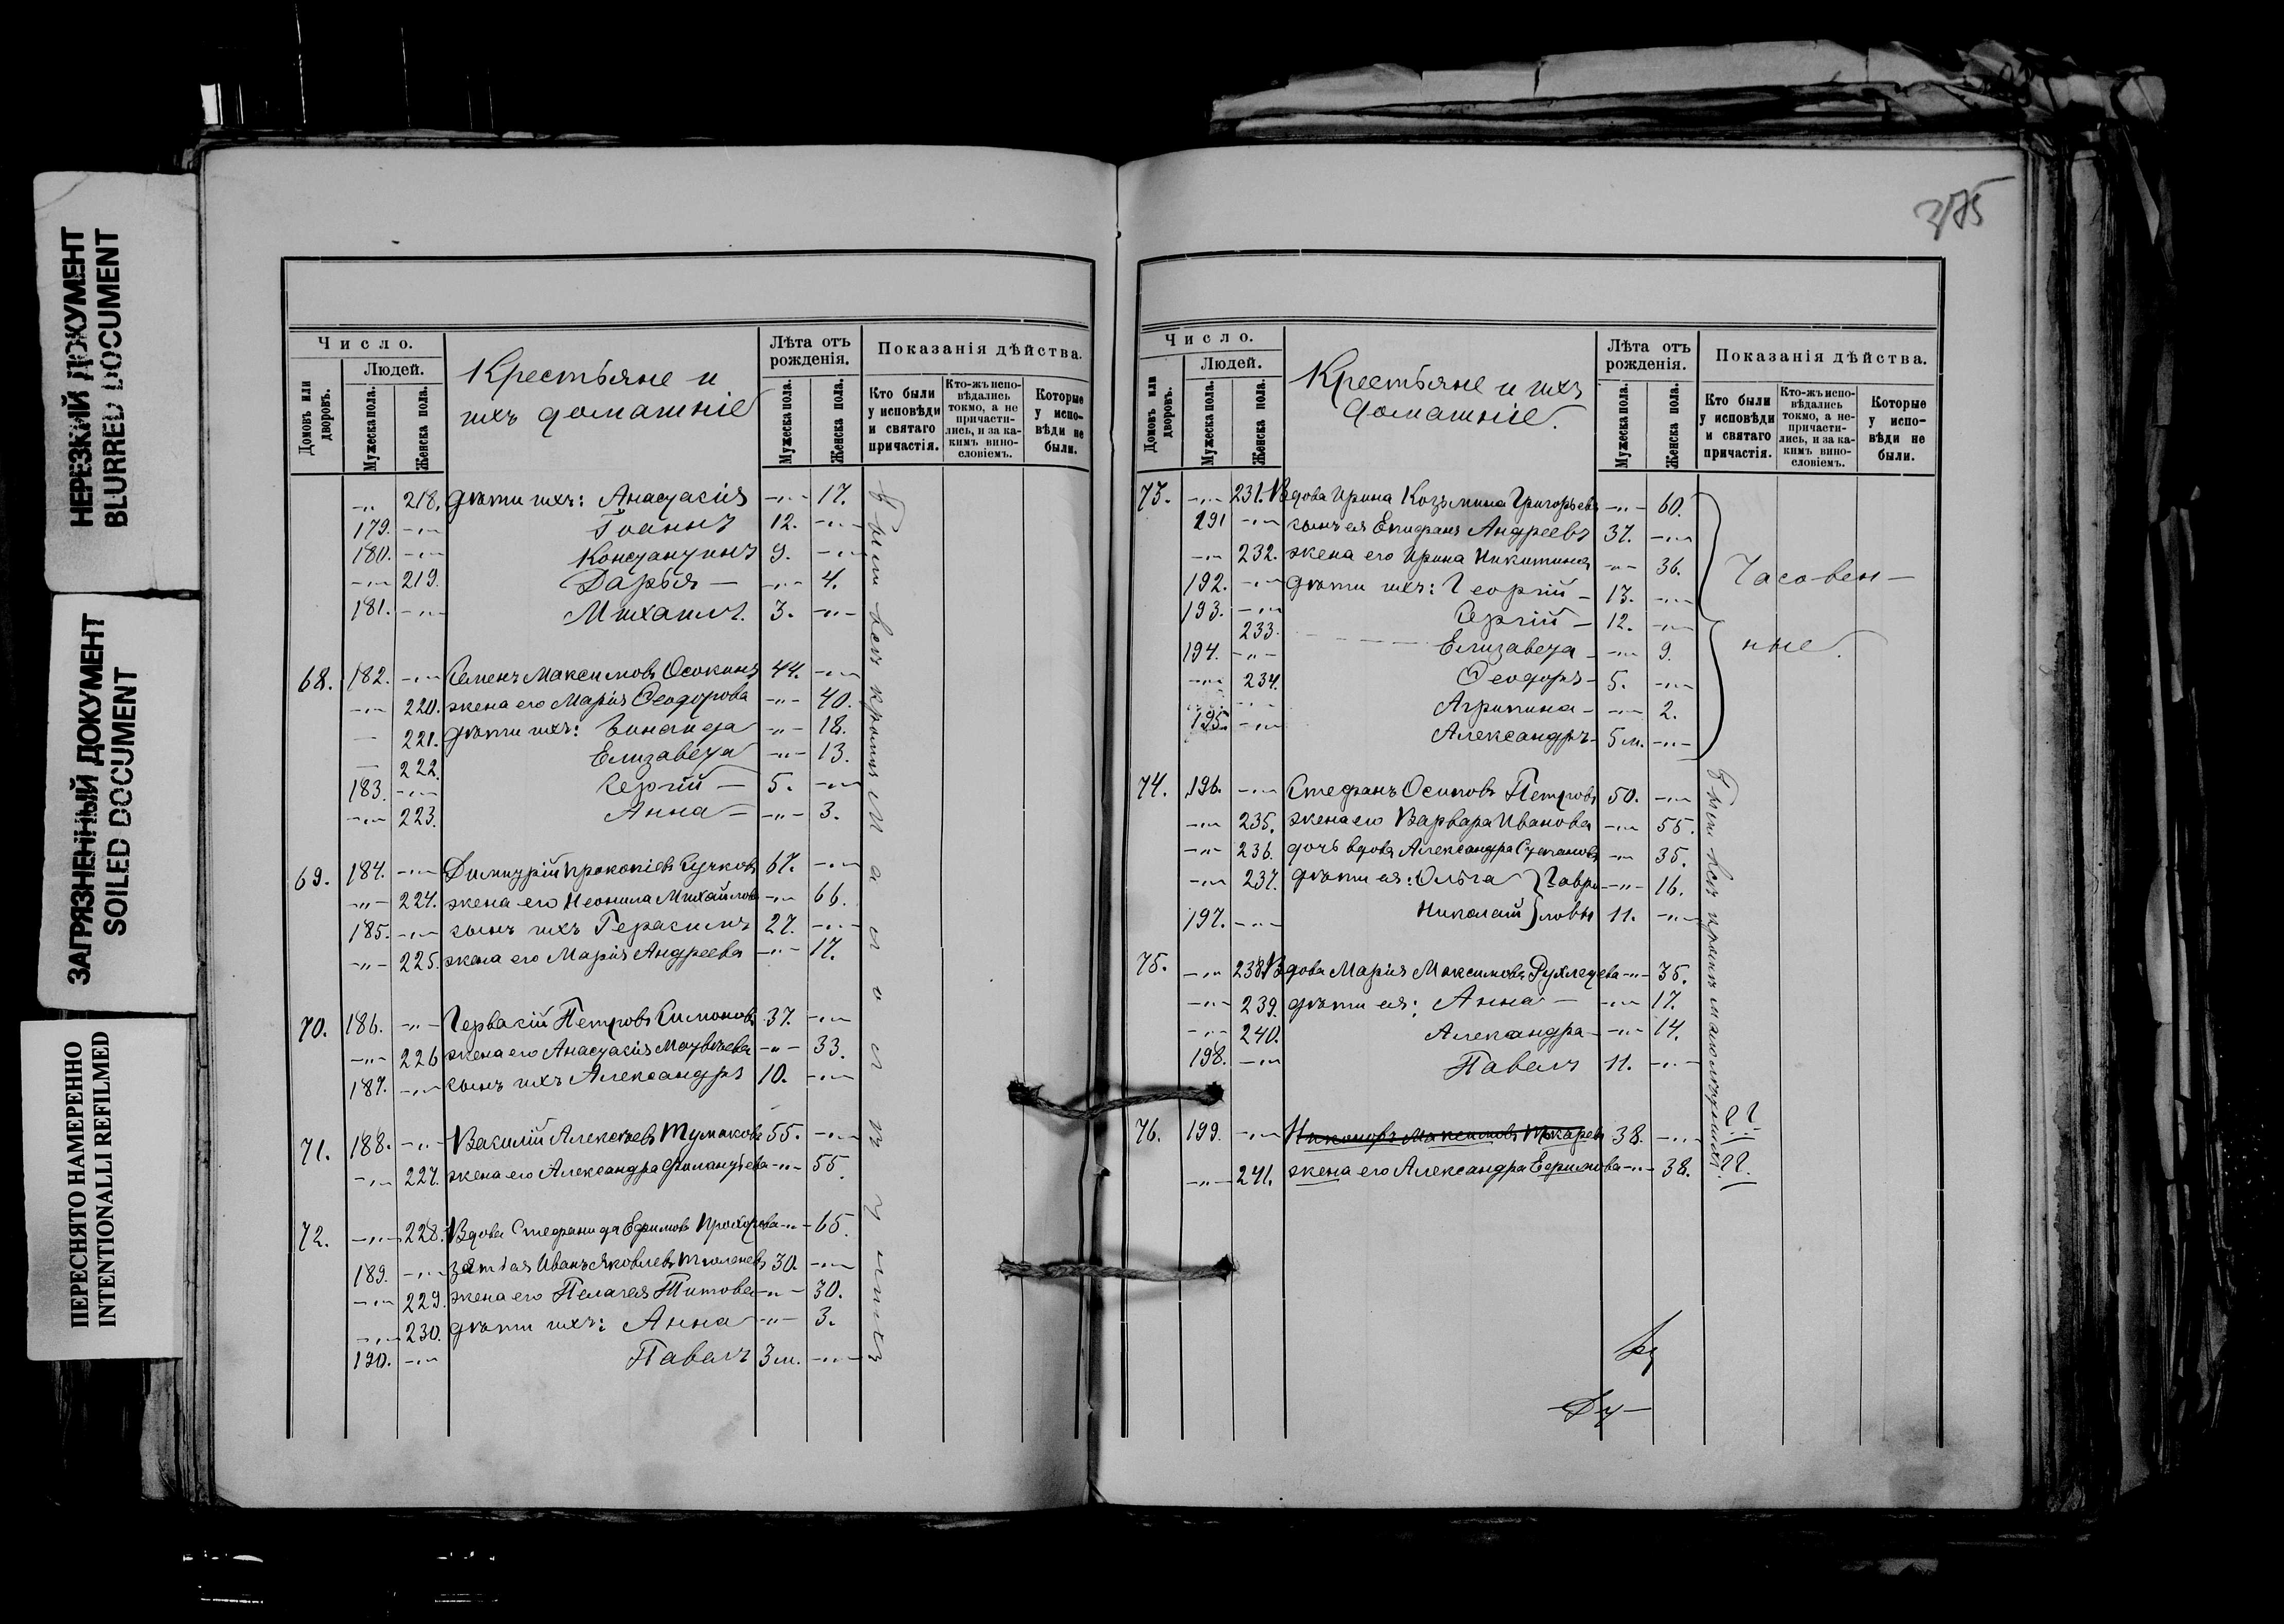 НЕРЕЗКИЙ ДОКУМЕНТ
BLURRED DOCUMENT
ЗАГРЯЗНЕННЫЙ ДОКУМЕНТ
SOILED DOCUMENT
ПЕРЕСНЯТО НАМЕРЕННО
INTENTIONALLI REFILMED
Число.
Домовъ или дворовъ.
Людей.
Мужеска пола.
Женска пола.
Крестьяне и
ихъ домашніе
Лѣта отъ рожденія.
Мужеска пола.
Женска пола.
Показанія дѣйства.
Кто были у исповѣди и святаго причастія.
Кто-жъ исповѣдались токмо, а не причастились, и за какимъ винословіемъ.
Которые у исповѣди не были.
-„- 218. дѣти ихъ: Анастасія -„- 17.
179. -„- Іоаннъ 12. -„-
180. -„- Константинъ 9. -„-
-„- 219. Дарья -„- 4.
181. -„- Михаилъ. 3. -„-
68. 182. -„- Семенъ Максимовъ Осокинъ 44. -„-
-„- 220. жена его Марія Ѳеодорова -„- 40.
— 221. дѣти ихъ: Зинаида -„- 18.
— 222. Елизавета -„- 13.
183. -„- Сергій 5. -„-
-„- 223. Анна -„- 3.
69. 184. -„- Димитрій Прокопіевъ Сучковъ 67. -„-
-„- 224. жена его Неонила Михайлова -„- 66.
185. -„- сынъ ихъ Герасимъ 27. -„-
-„- 225. жена его Марія Андреева -„- 17.
70. 186. -„- Гервасій Петровъ Симоновъ 37. -„-
-„- 226 жена его Анастасія Матвѣева -„- 33.
187. -„- сынъ ихъ Александръ 10. -„-
71. 188. -„- Василій Алексѣевъ Тумаковъ 55. -„-
-„- 227. жена его Александра -„- 55.
72. -„- 228. Вдова Стефанида Ефимова Прохорова -„- 65.
189. -„- зять ея Иванъ Яковлевъ Тюленевъ 30. -„-
-„- 229. жена его Пелагея Титова -„- 30.
-„- 230. дѣти ихъ: Анна -„- 3.
190. -„- Павелъ 3 м. -„-
Были всѣ кромѣ Малолѣтнихъ
375
Число.
Домовъ или дворовъ.
Людей.
Мужеска пола.
Женска пола.
Крестьяне и ихъ
домашніе.
Лѣта отъ рожденія.
Мужеска пола.
Женска пола.
Показанія дѣйства.
Кто были у исповѣди и святаго причастія.
Кто-жъ исповѣдались токмо, а не-причастились, и за какимъ винословіемъ.
Которые у исповѣди не были.
73. -„- 231. Вдова Ирина Козьмина Григорьева -„- 60.
191 -„- сынъ ея Епифанъ Андреевъ 37. -„-
-„- 232. жена его Ирина Никитина -„- 36.
192. -„- дѣти ихъ: Георгій 13. -„-
193. -„- Сергій 12. -„-
233. Елизавета -„- 9.
194. -„- Ѳеодоръ 5. -„-
-„- 234. Агрипина -„- 2.
195. -„- Александръ 5 м. -„-
Часовен-
ные.
74. 196. -„- Стефанъ Осиповъ Петровъ 50. -„-
-„- 235. жена его Варвара Иванова -„- 55.
-„- 236. дочь вдова Александра Степанова -„- 35.
-„- 237. дѣти ея: Ольга } Гаври- -„- 16.
197. -„- Николай } ловы 11. -„-
75. -„- 238. Вдова Марія Максимова -„- 35.
-„- 239. дѣти ея: Анна -„- 17.
-„- 240. Александра -„- 14.
198. -„- Павелъ 11. -„-
Были всѣ кромѣ малолѣтнихъ
76. 199. -„- Максимовъ Токаревъ 38. -„- ??
-„- 241. жена его Александра Ефимова -„- 38. ??